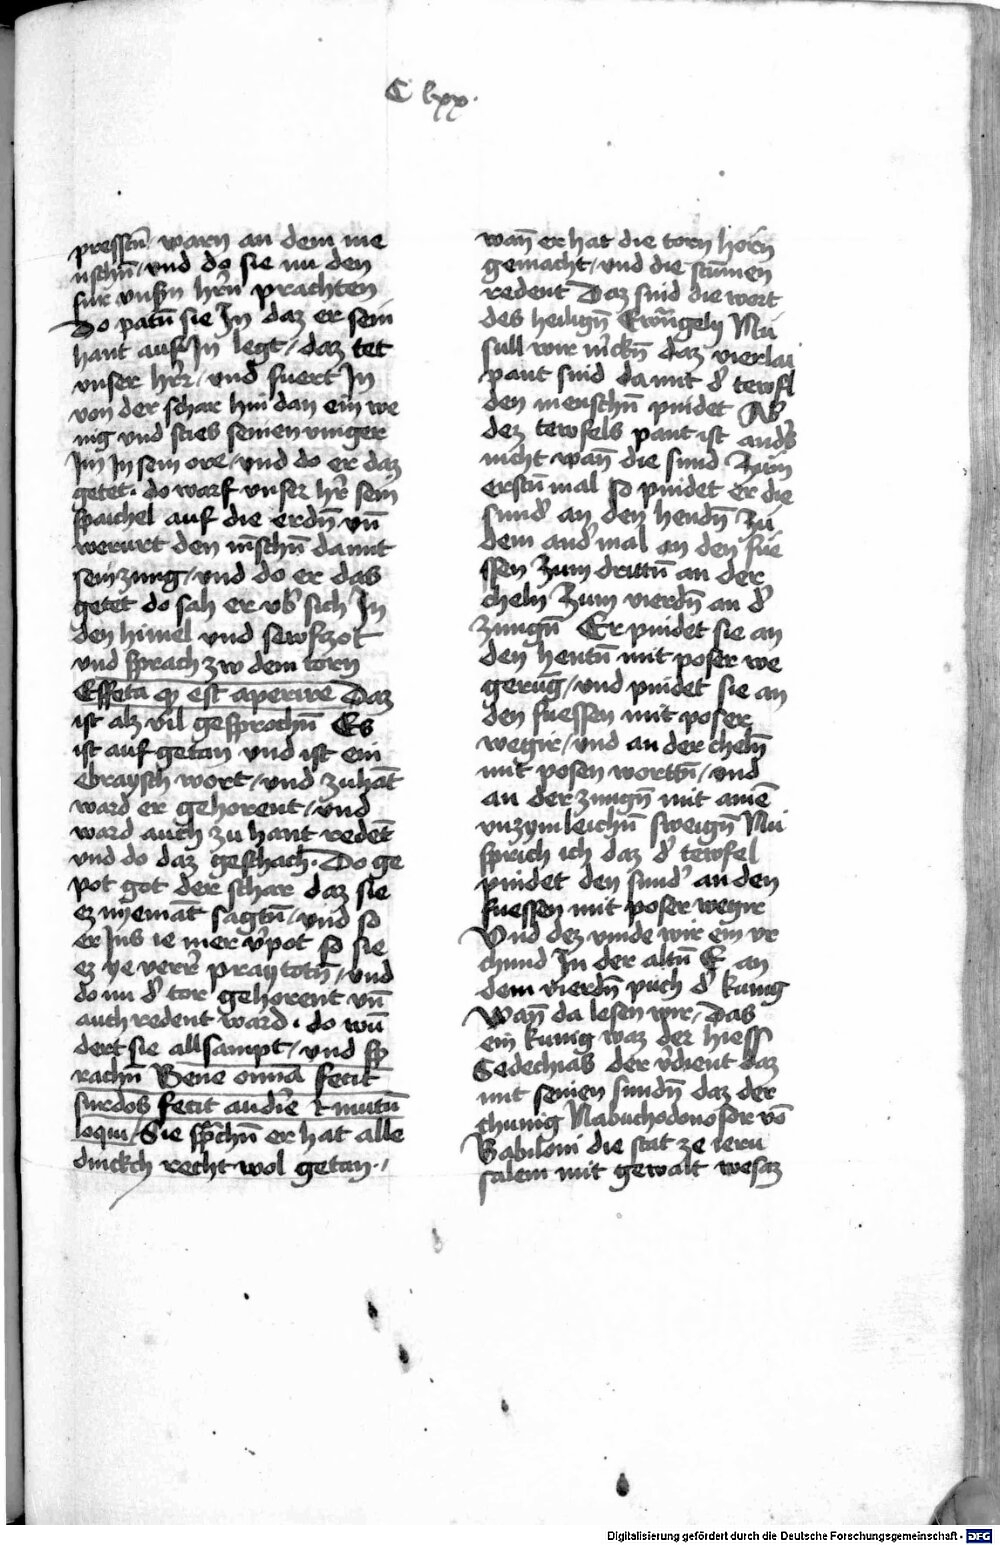 C lxx.
pressten / warn an dem me
nschn̄ / vnd do sie nu den
fur vnsn̄ hrn̄ prachten
Do patn̄ sie In daz er sein
hant auf In legt / daz tet
vnser hr̄r / vnd fuert In
von der schar hin dan ein we
nig vnd sties seinen vinger
Im In sein ore / vnd do er daz
getet . do warf vnser hr̄ sein
spaichel auf die erdn̄ vn̄
werurt den mn̄schn̄ damit
sein zung / vnd do er das
getet do sah er vb̄ sich In
den himel vnd sewfczot
vnd sprach zw dem torn
Effeta qᷓ est aperire Daz
ist alz vil gesprochn̄ Es
ist auf getan vnd ist ein
ebraysch wort / vnd zuhāt
ward er gehorent / vnd
ward auch zu hant redēt
vnd do daz geschach . Do ge
pot got der schar daz sie
ez nyemāt sagtn̄ / vnd so
er Ins ie mer v̄pot so sie
ez ye verr̄ praytotn̄ / vnd
do nu d̓ tor gehorent vn̄
auch redent ward . do wū
dert sie allsampt / vnd sp
rachn̄ Bene omnia fecit
surdos fecit audīe & mutū
loqui / Sie sprͣchn̄ er hat alle
dinckch recht wol getan . /
wan̄ er hat die torn horn̄
gemacht / vnd die stūmen
redent Daz sind die wort
des heilign̄ Ewāgely Nu
sull wir m̓ckn̄ daz vierlai
pant sind da mit d̓ tewfl
den menschn̄ pindet Ab̓
dez tewfels pant ist and̓s
nicht wan̄ die sund Zum
erstn̄ mal so pindet er die
sund̓ an den hendn̄ Zu
dem and̓ mal an den fue
ssen Zum drittn̄ an der
cheln Zum vierdn̄ an d̓
zungn̄ Er pindet sie an
den hentn̄ mit poser we
gerūg / vnd pindet sie an
den fuessen mit poser
wegir / vnd an der cheln̄
mit posen wortn̄ / vnd
an der zungn̄ mit ainē
vnzymleichn̄ sweign̄ Nu
sprich ich daz d̓ tewfel
pindet den sund̓ an den
fuessen mit poser wegir
Vnd dez vinde wir ein vr
chund In der altn̄ E an
dem vierdn̄ puch d̓ kunig
Wan̄ da lesen wir / Das
ein kunig waz der hiess
Sedechias der v̓dient daz
mit seinen sundn̄ daz der
chunig Nabuchodonosor vō
Babiloni die stat ze ieru
salem mit gewalt wesaz
Digitalisierung gefördert durch die Deutsche Forschungsgemeinschaft - DFG